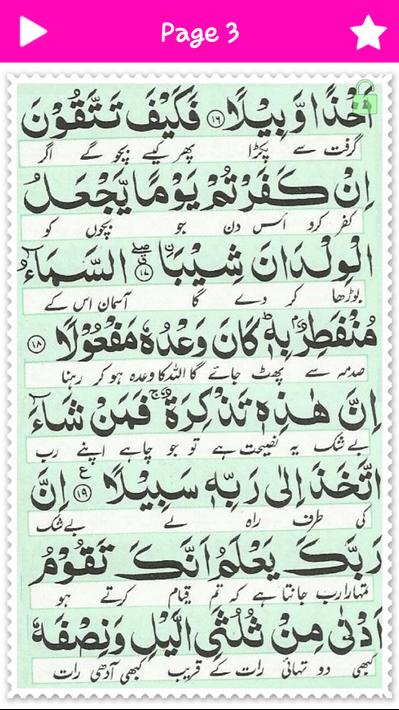 Page 3
اَخْذًا وَّبِيْلًا ۝۱۶ فَكَيْفَ تَتَّقُوْنَ
گرفت سے پکڑا پھر کیسے بچو گے اگر
اِنْ كَفَرْتُمْ يَوْمًا يَّجْعَلُ
کفر کرو اُس دن جو بچوں کو
الْوِلْدَانَ شِيْبَا ۝۱۷ السَّمَآءُ
بوڑھا کر دے گا آسمان اس کے
مُنْفَطِرٌۢ بِهٖ ؕ كَانَ وَعْدُهٗ مَفْعُوْلًا ۝۱۸
صدمہ سے پھٹ جائے گا اللہ کا وعدہ ہو کر رہنا
اِنَّ هٰذِهٖ تَذْكِرَةٌ ۚ فَمَنْ شَآءَ
بے شک یہ نصیحت ہے تو جو چاہے اپنے رب
اتَّخَذَ اِلٰى رَبِّهٖ سَبِيْلًا ۝۱۹ ع اِنَّ
کی طرف راہ لے بےشک
رَبَّكَ يَعْلَمُ اَنَّكَ تَقُوْمُ
تمہارا رب جانتا ہے کہ تم قیام کرتے ہو
اَدْنٰى مِنْ ثُلُثَىِ الَّيْلِ وَنِصْفَهٗ
کبھی دو تہائی رات کے قریب کبھی آدھی رات